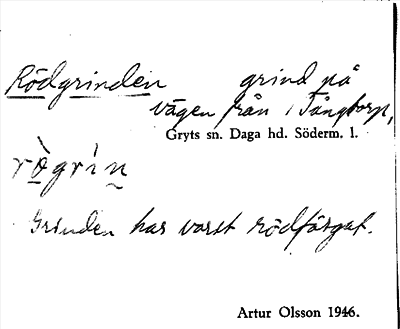 Rödgrinden grind på
vägen från Tångtorp,
Gryts sn. Daga hd. Söderm. l.
rògrìn
Grinden har varit rödfärgat.
Artur Olsson 1946.